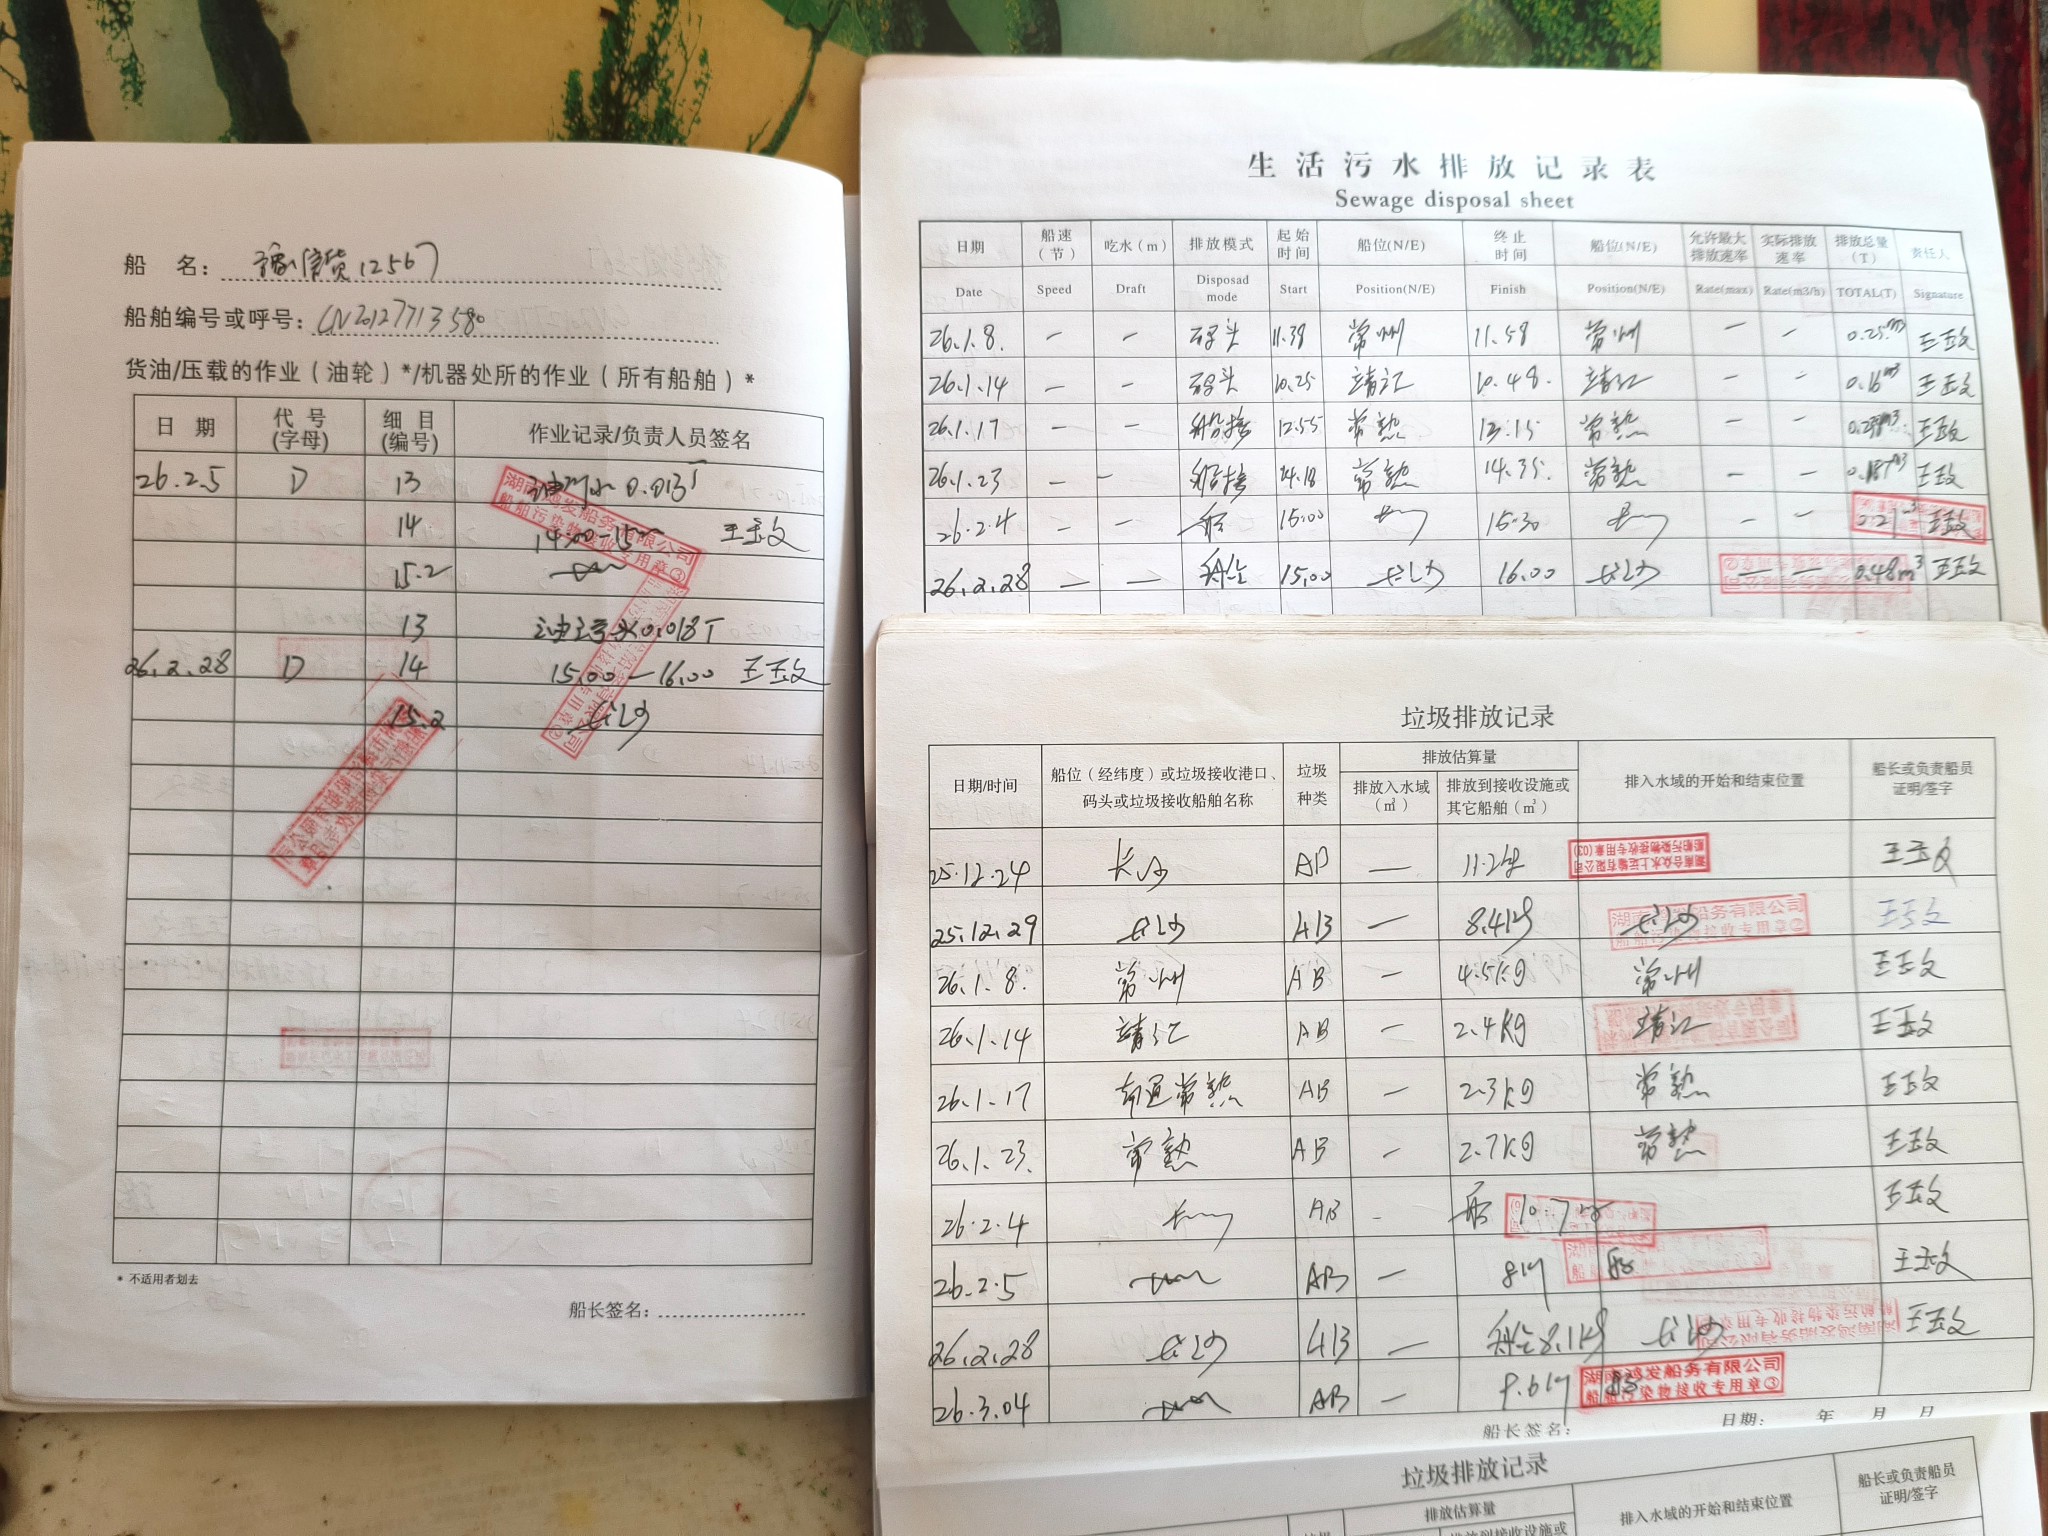 船 名： 豫信货12567
船舶编号或呼号：CN20127713580
货油/压载的作业（油轮）*/机器处所的作业（所有船舶）*
日 期 代 号 (字母) 细 目 (编号) 作业记录/负责人员签名
26.2.5 D 13 油污水 0.013T
14 14:00-15 王玉文
15.2
13 油污水0.018T
26.2.28 D 14 15.00—16.00 王玉文
15.2 长沙
湖南鸿发船务有限公司
船舶污染物接收专用章③
* 不适用者划去
船长签名：
生活污水排放记录表
Sewage disposal sheet
日期 船速（节） 吃水（m） 排放模式 起始时间 船位(N/E) 终止时间 船位(N/E) 允许最大排放速率 实际排放速率 排放总量（T） 责任人
Date Speed Draft Disposad mode Start Position(N/E) Finish Position(N/E) Rate(max) Rate(m3/h) TOTAL(T) Signature
26.1.8. — — 码头 11.38 常州 11.58 常州 — — 0.25m³ 王玉文
26.1.14 — — 码头 10.25 靖江 10.48. 靖江 — — 0.16m³ 王玉文
26.1.17 — — 船接 12.55 常熟 13:15 常熟 — — 王玉文
26.1.23 — — 船接 14.18 常熟 14.35. 常熟 — — 王玉文
26.2.4 — — 船 15:00 15:30 — — 王玉文
26.2.28 — — 船 15.00 长沙 16.00 长沙 — — 0.48m³ 王玉文
垃圾排放记录
日期/时间 船位（经纬度）或垃圾接收港口、码头或垃圾接收船舶名称 垃圾种类 排放估算量 排放入水域（m³） 排放到接收设施或其它船舶（m³） 排入水域的开始和结束位置 船长或负责船员证明/签字
25.12.24 长沙 AB — 王玉文
25.12.29 长沙 AB — 8.4kg 长沙 王玉文
26.1.8. 常州 AB — 4.5KG 常州 王玉文
26.1.14 靖江 AB — 2.4KG 靖江 王玉文
26.1.17 常熟 AB — 2.3KG 常熟 王玉文
26.1.23. 常熟 AB — 2.7KG 常熟 王玉文
26.2.4 AB - 船 10.7 王玉文
26.2.5 AB — 船 王玉文
26.2.28 长沙 AB — 8.1kg 长沙 王玉文
26.3.04 AB —
湖南鸿发船务有限公司
船舶污染物接收专用章③
船长签名： 日期： 年 月 日
垃圾排放记录
排放估算量 排入水域的开始和结束位置 船长或负责船员证明/签字
排放到接收设施或